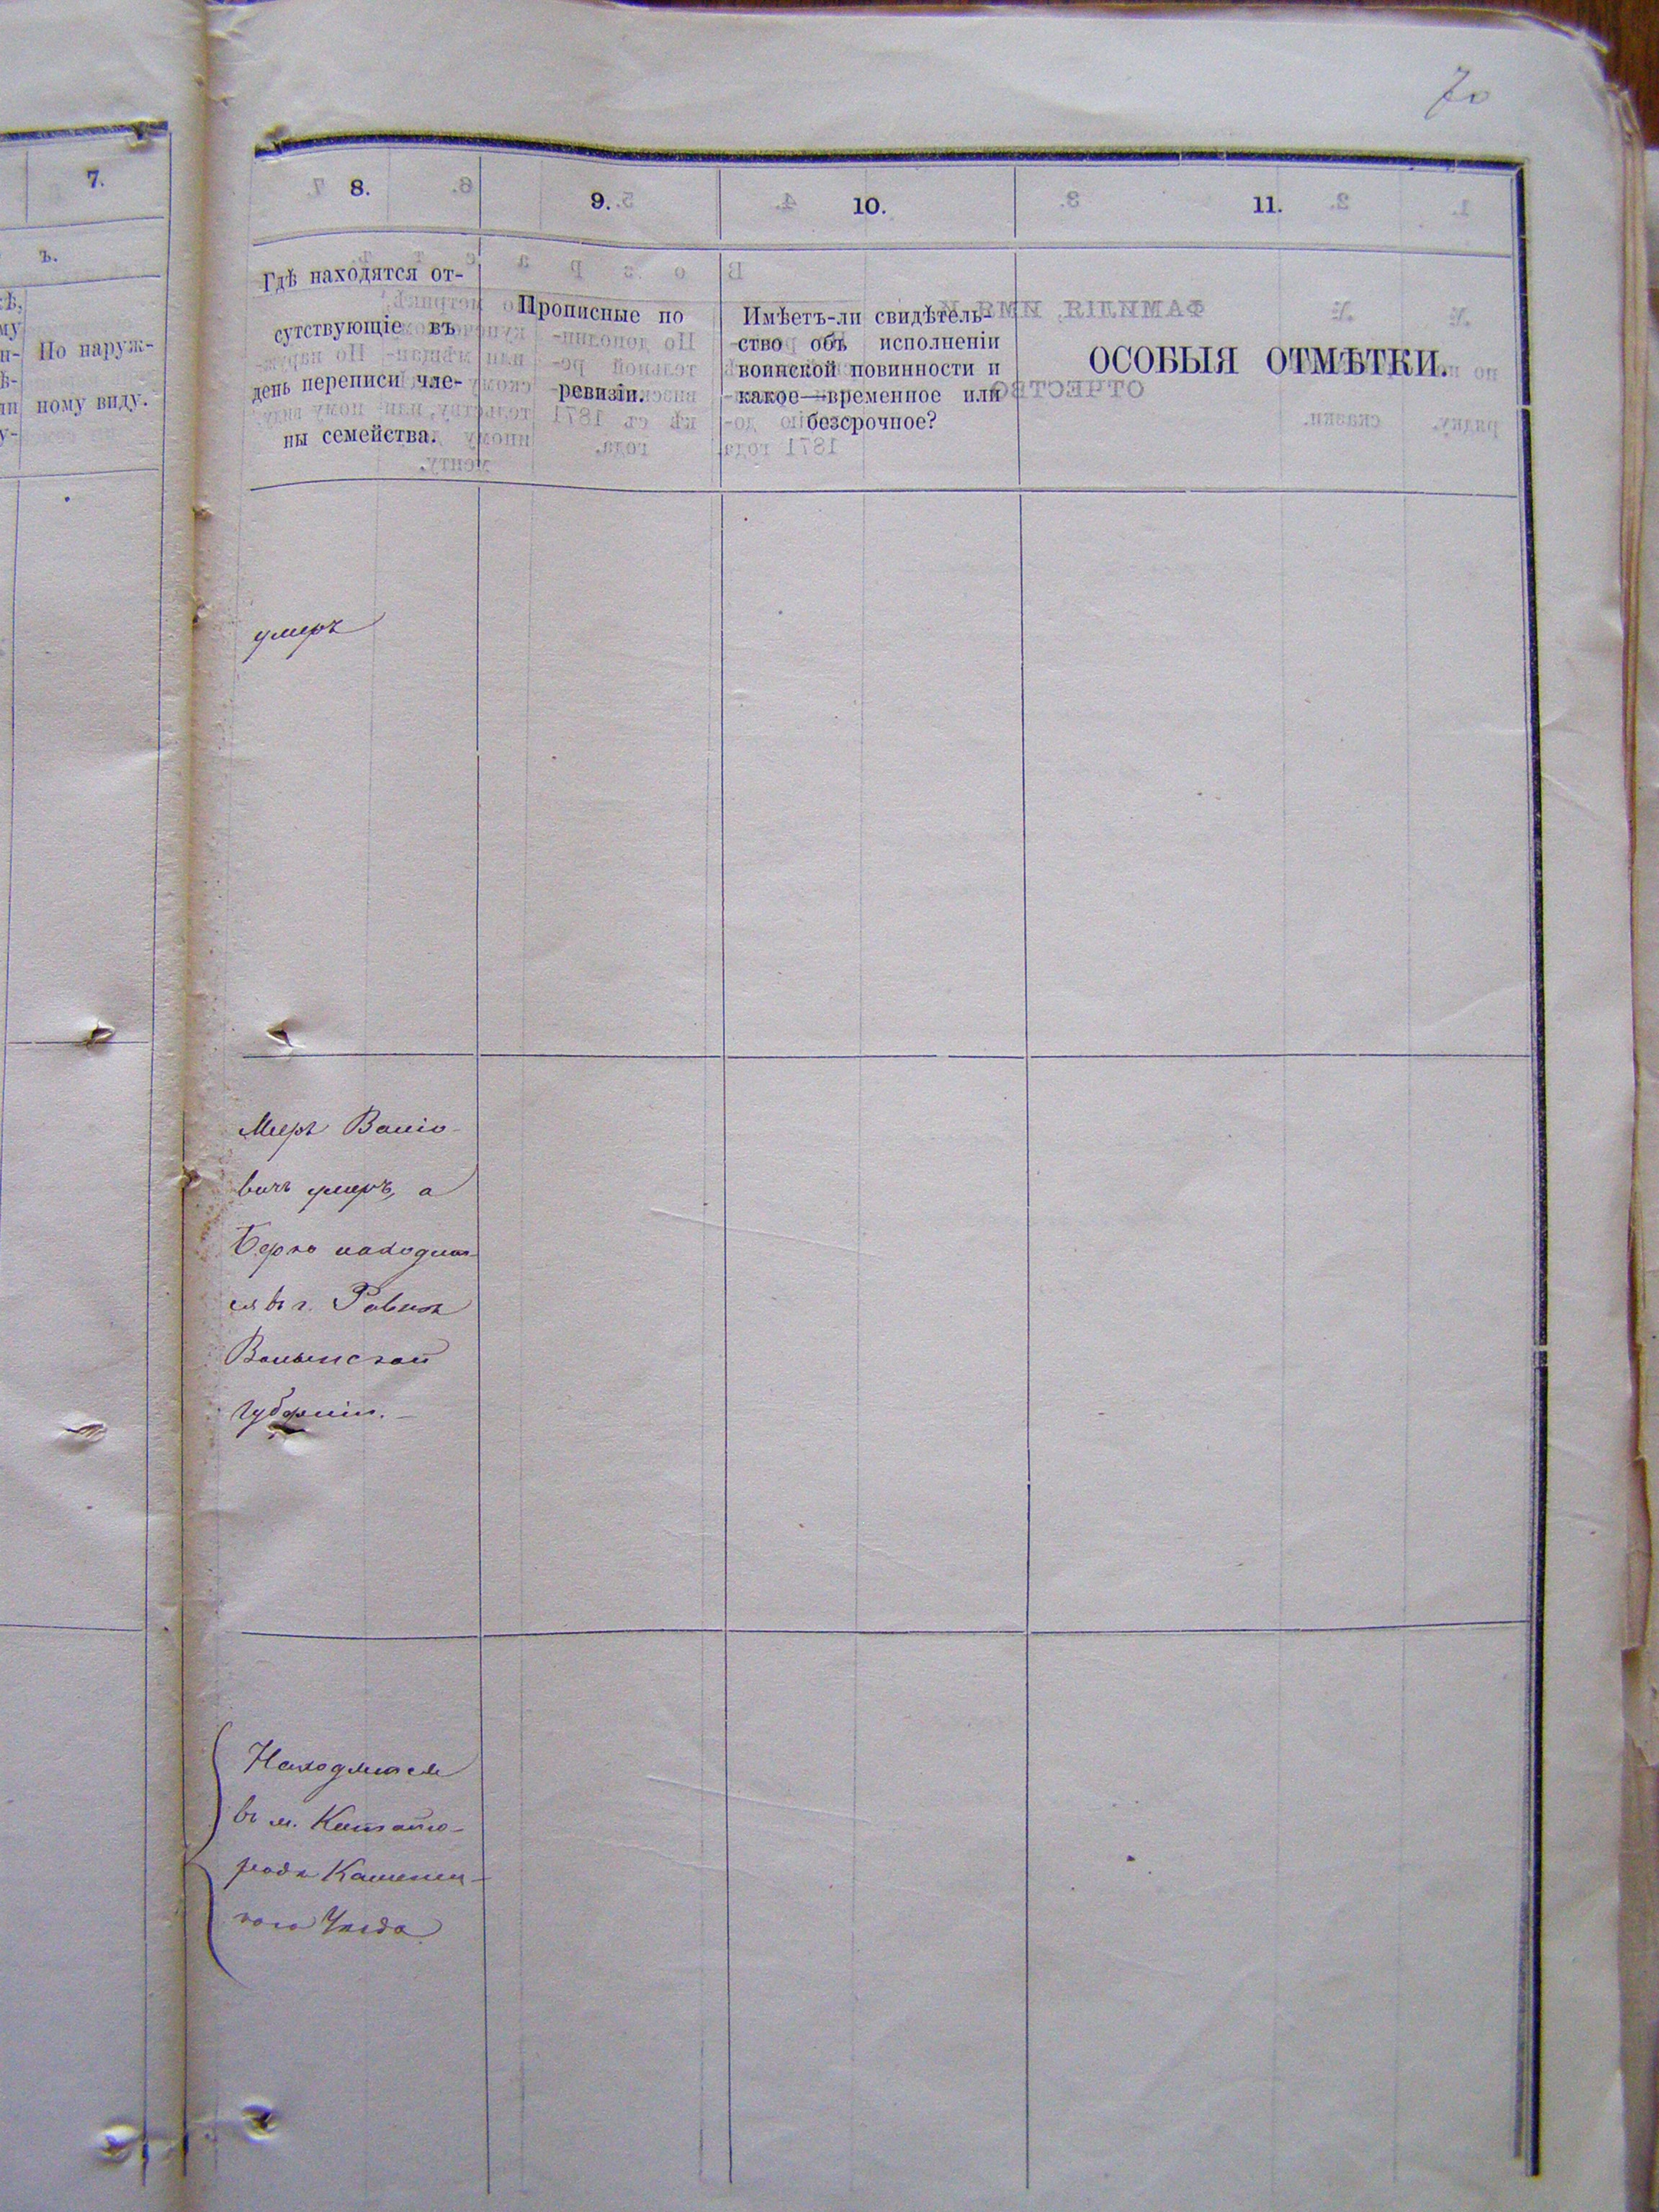 70
7.
ъ.
По наруж-
ному виду.
8.
9.
10.
11.
Гдѣ находятся от-
сутствующіе въ
день переписи чле-
ны семейства.
Прописные по
ревизіи.
Имѣетъ-ли свидѣтель-
ство объ исполненіи
воинской повинности и
какое—временное или
безсрочное?
ОСОБЫЯ ОТМѢТКИ.
умеръ
Меръ
вичъ умеръ, а
Берко находит-
ся въ г. Ровнѣ
Волынской
Губерніи.
Находится
въ м. Китайго-
родѣ Каменец-
кого Уѣзда